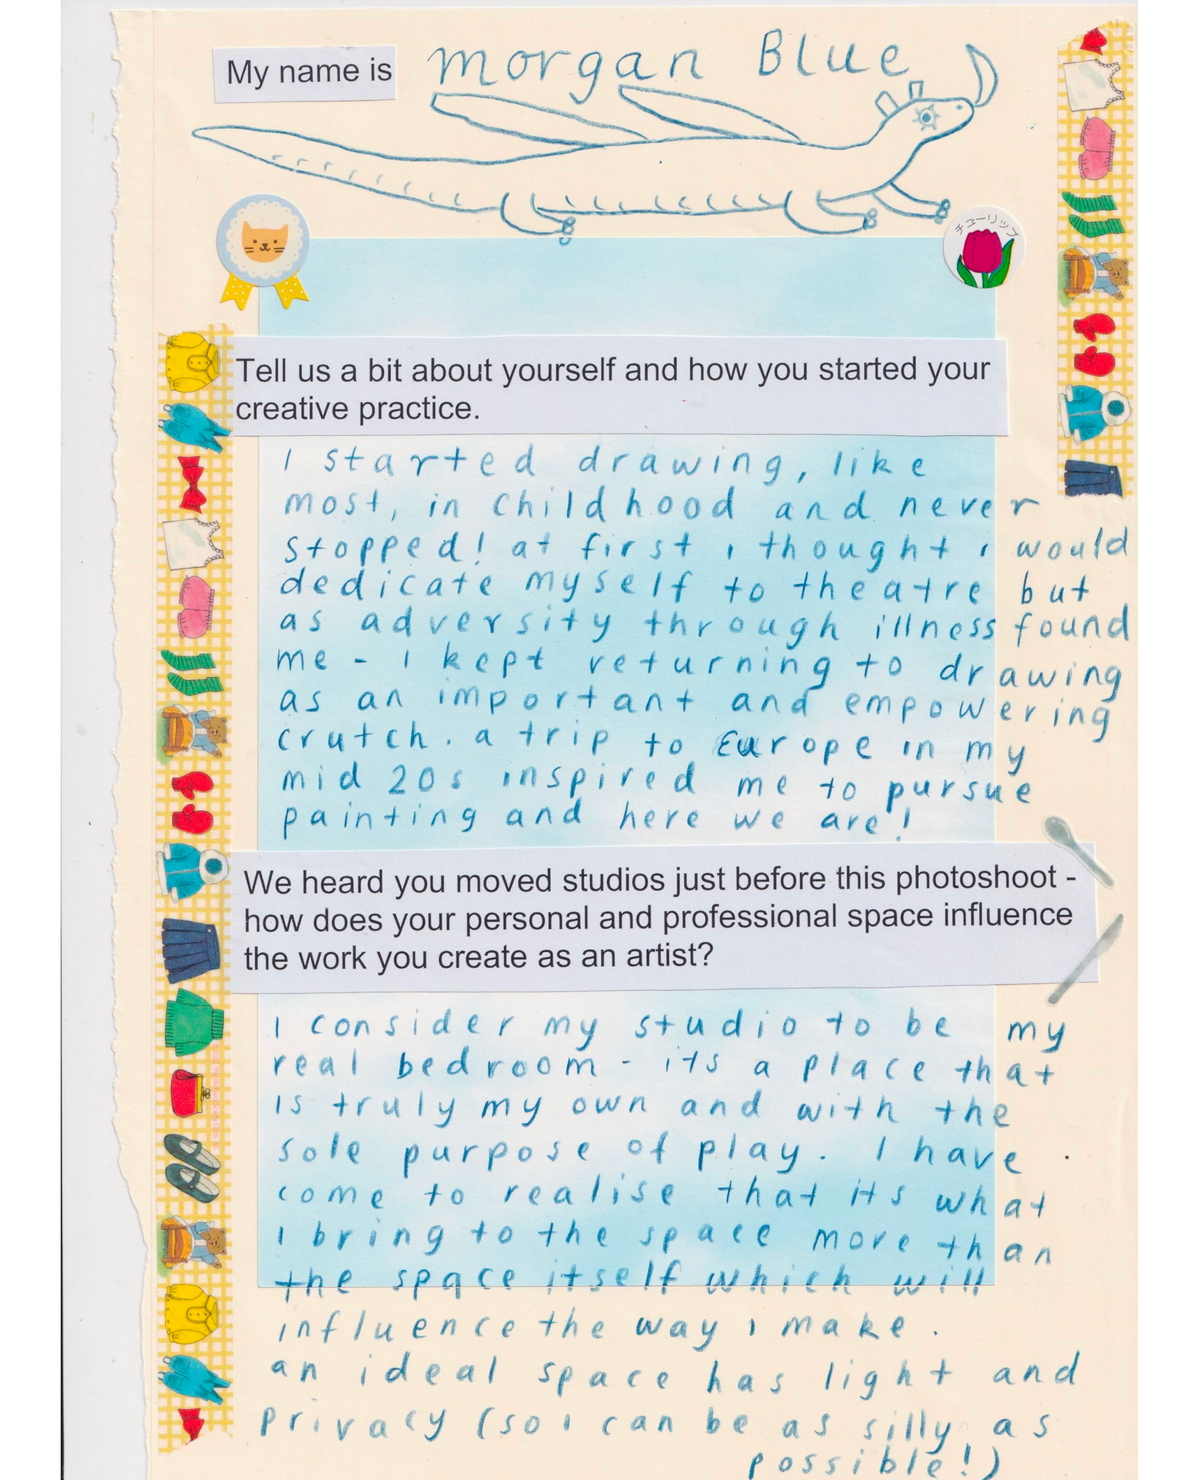 My name is morgan Blue
チューリップ
Tell us a bit about yourself and how you started your
creative practice.
I started drawing, like
most, in childhood and never
stopped! at first i thought i would
dedicate myself to theatre but
as adversity through illness found
me - I kept returning to drawing
as an important and empowering
crutch. a trip to Europe in my
mid 20s inspired me to pursue
painting and here we are!
We heard you moved studios just before this photoshoot -
how does your personal and professional space influence
the work you create as an artist?
I consider my studio to be my
real bedroom - its a place that
is truly my own and with the
sole purpose of play. I have
come to realise that its what
I bring to the space more than
the space itself which will
influence the way i make.
an ideal space has light and
privacy (so i can be as silly as
possible!)